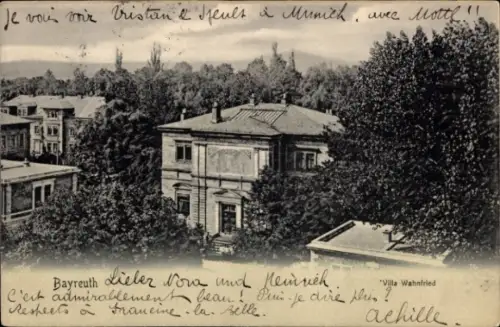 Je vais voir Tristan & Iseult à Munich, avec Mottl!!
Bayreuth
Villa Wahnfried
Lieber Nova und Heinrich
C'est admirablement beau! Puis-je dire plus?
Respects à Francine-la-belle.
Achille.